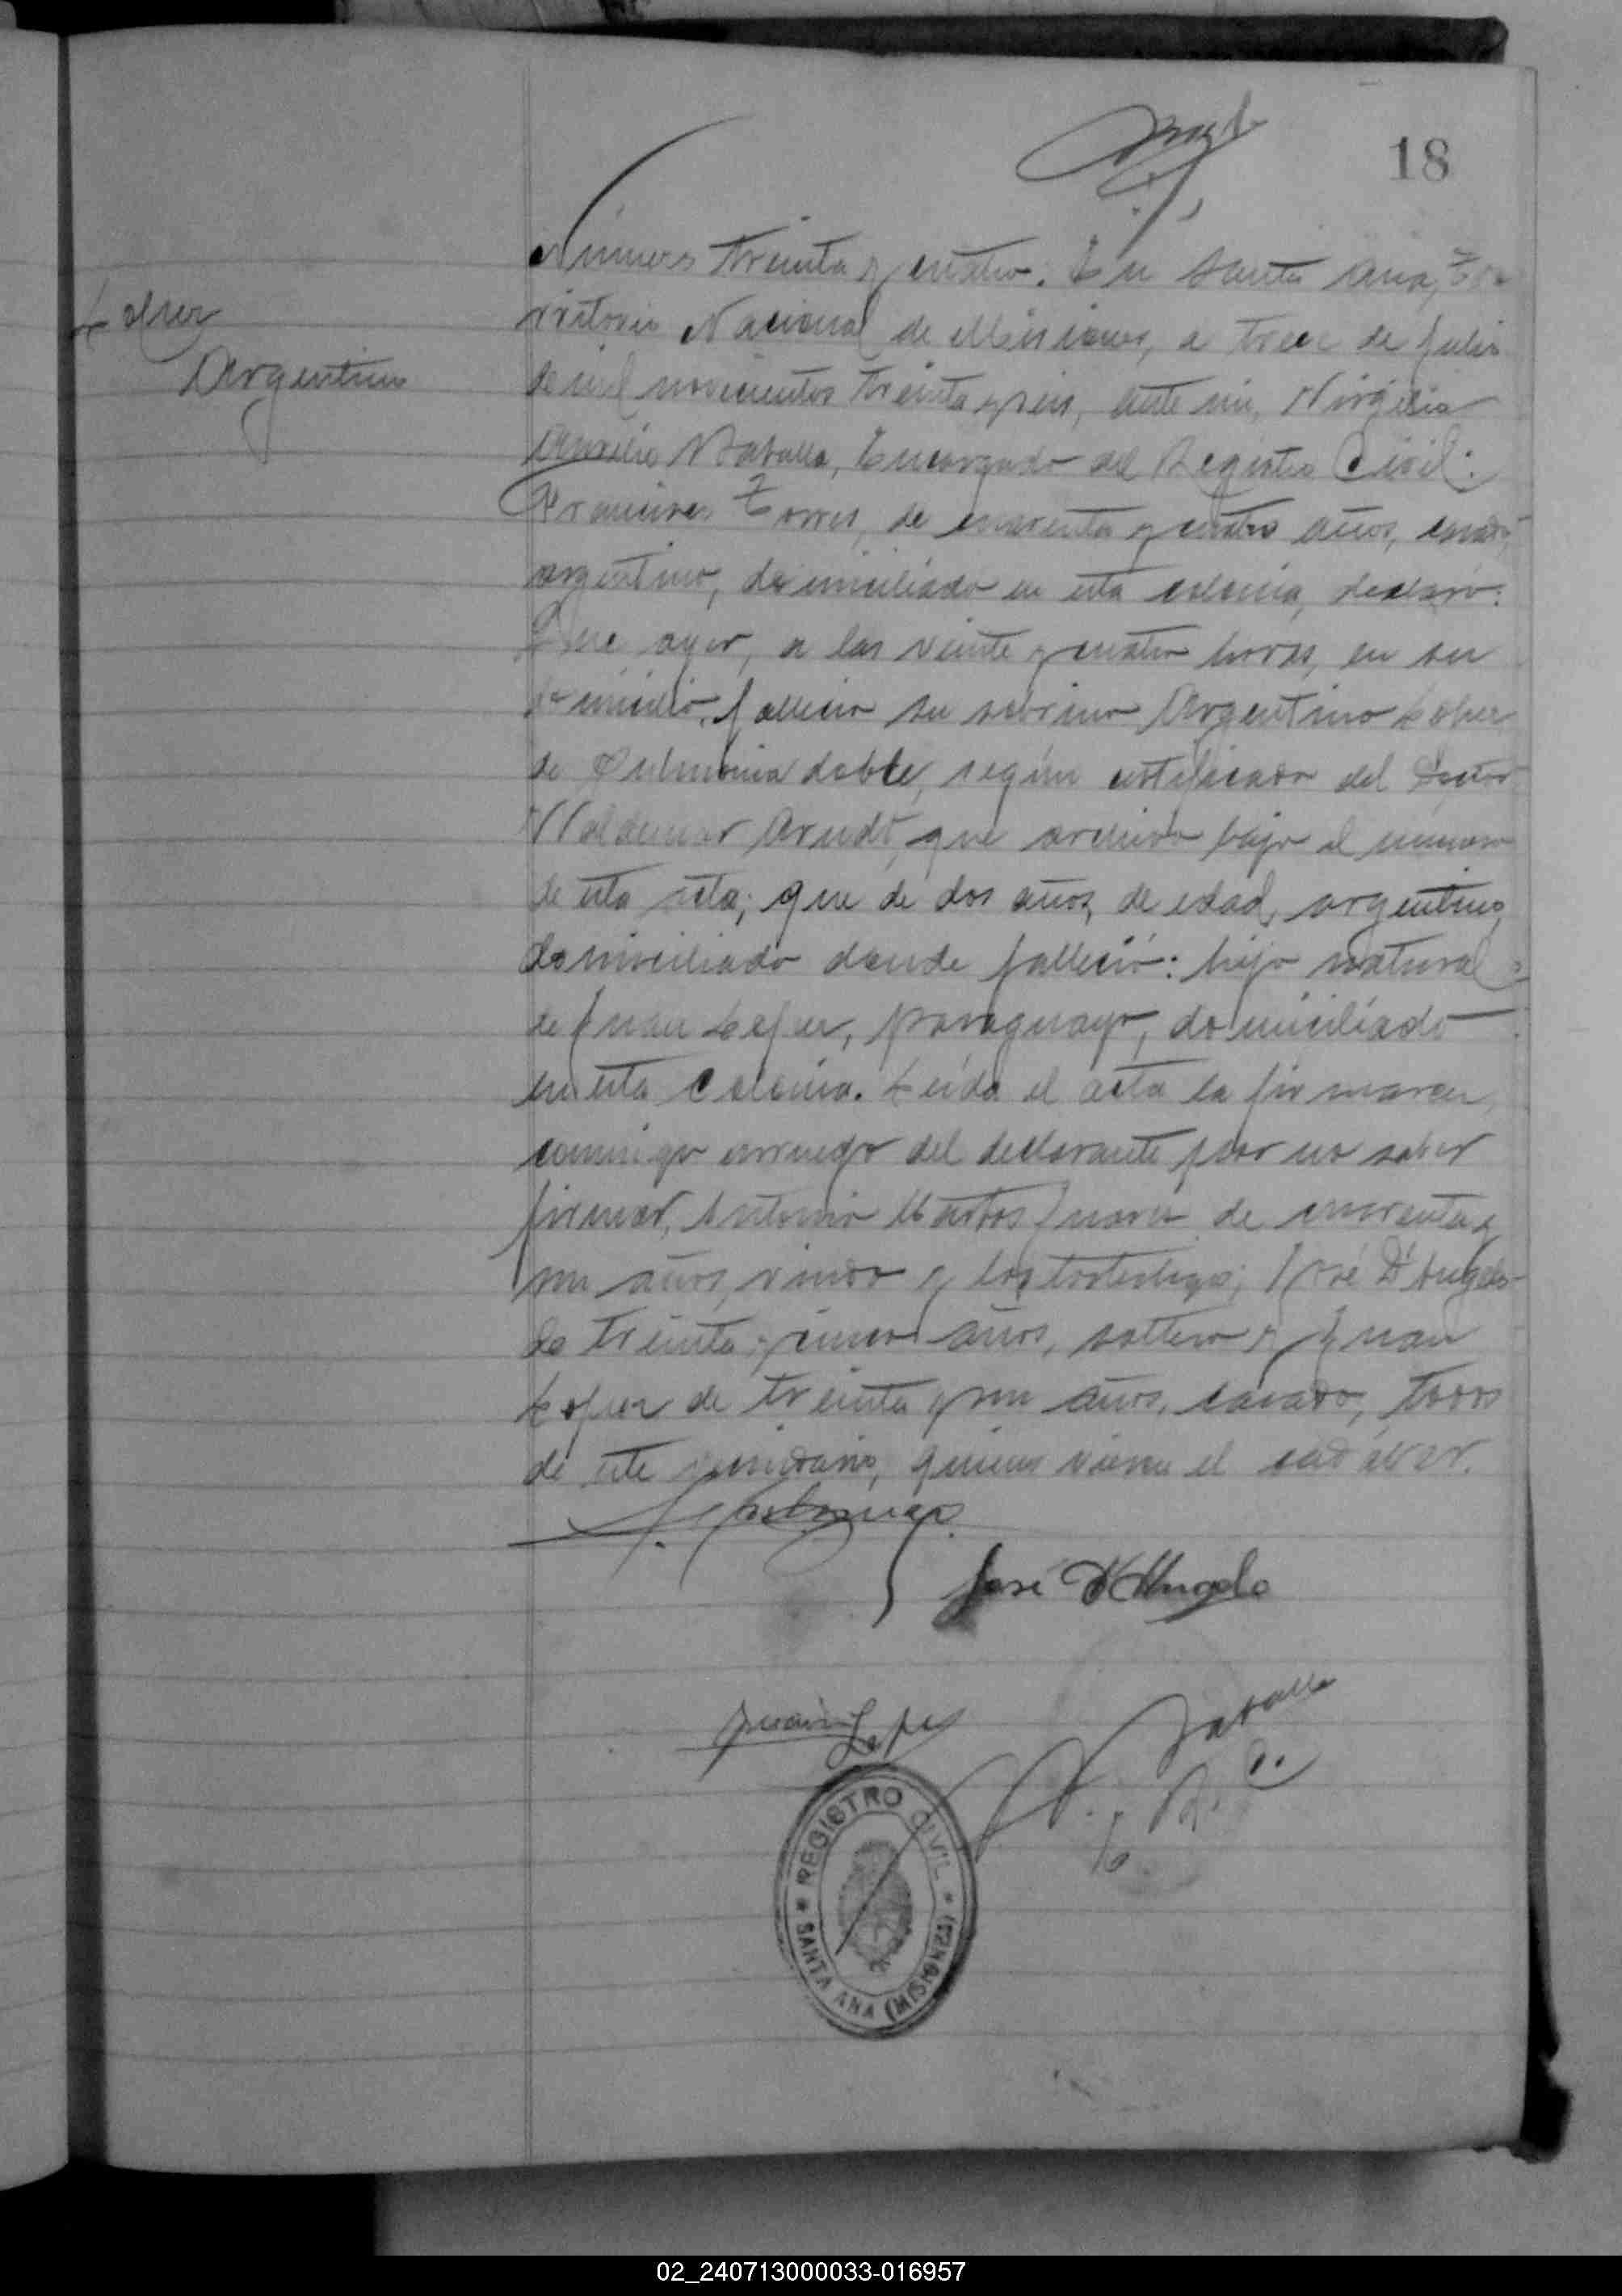 18
Lopez
Argentino
Número treinta y cuatro. En Santa Ana, Te-
rritorio Nacional de Misiones, a trece de Julio
de mil novecientos treinta y seis, ante mí, Virgilio
Aurelio Zaballa, Encargado del Registro Civil:
Francisco Torres, de cuarenta y cuatro años, casado,
argentino, domiciliado en esta colonia, declaró:
Que ayer, a las veinte y cuatro horas, en su
domicilio, falleció su sobrino Argentino Lopez
de Pulmonia doble, según certificado del Doctor
Waldemar Arndt, que archivo bajo el número
de esta acta; que de dos años, de edad, argentino,
domiciliado donde falleció: hijo natural
de Juan Lopez, paraguayo, domiciliado
en esta Colonia. Leida el acta la firmaron
conmigo a ruego del declarante por no saber
firmar, Antonio de cuarenta y
un años, viudo y los testigos; José D'Angelo
de treinta y cinco años, soltero y Juan
Lopez de treinta y un años, casado, todos
de este vecindario, quienes vieron el cadáver.
José D'Angelo
Juan Lopez
Zaballa
E. R. C.
REGISTRO CIVIL
SANTA ANA (MISIONES)
02_240713000033-016957